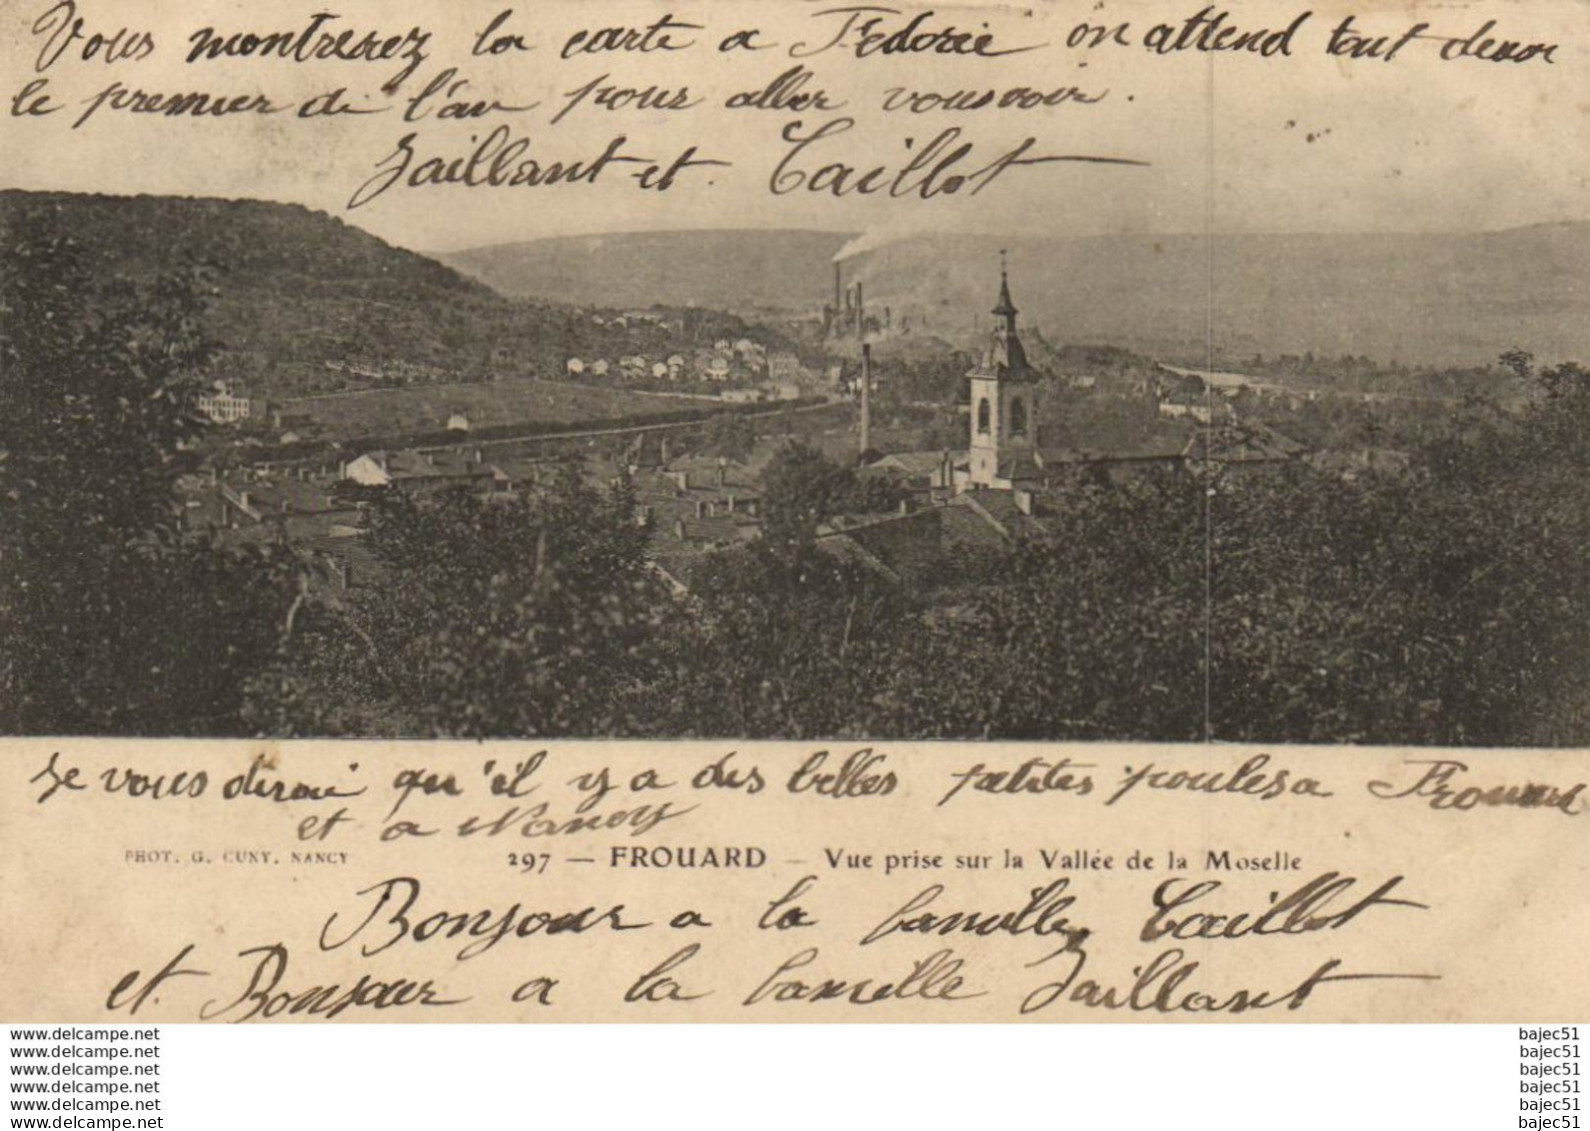 Vous montrerez la carte a Fedorie on attend tout deux
le premier de l'an pour aller vous voir.
Jaillant et Caillot
Je vous dirai qu'il y a des belles petites poules a Frouard
et a Nancy
PHOT. G. CUNY, NANCY
297 — FROUARD — Vue prise sur la Vallée de la Moselle
Bonjour a la famille Caillot
et Bonjour a la famille Jaillant
www.delcampe.net bajec51
www.delcampe.net bajec51
www.delcampe.net bajec51
www.delcampe.net bajec51
www.delcampe.net bajec51
www.delcampe.net bajec51